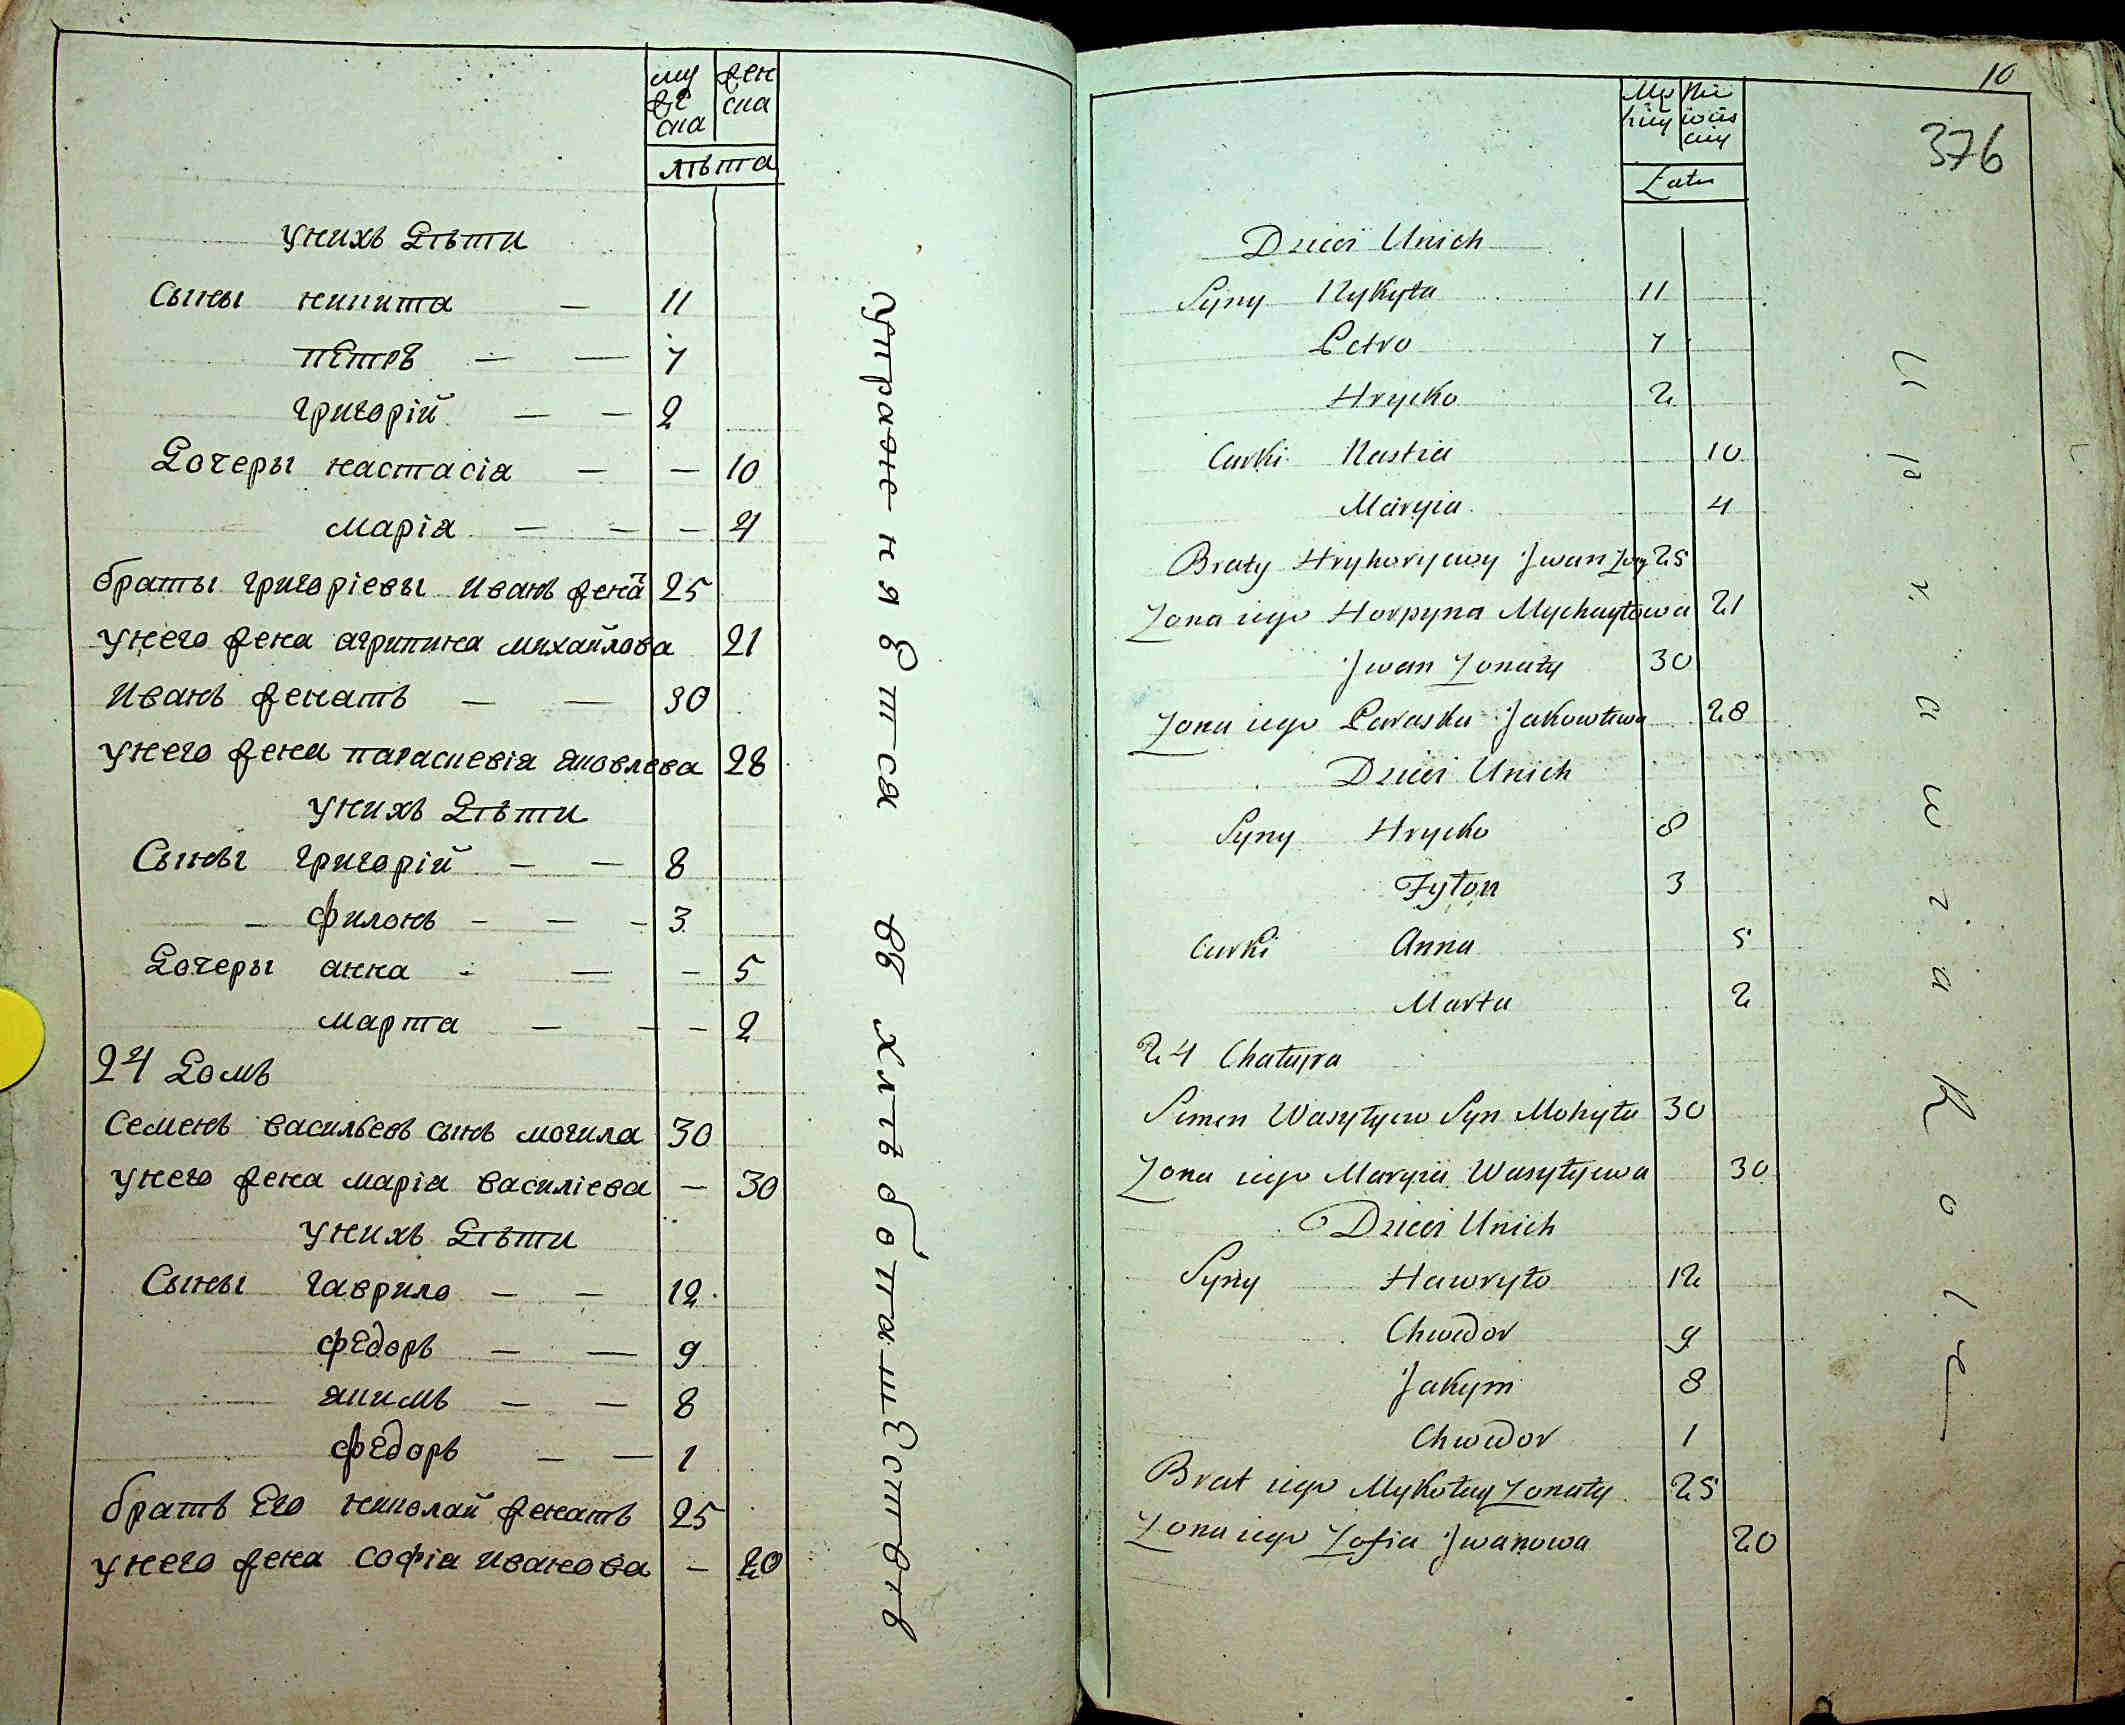 му
же
ска
жен
ска
лѣта
у нихъ дѣти
Сыны никита — 11
пЕтръ — — 7
григорій — — 2
Дочеры настасіа — — 10
маріа — — — 4
браты григоріевы иванъ жена̃ 25
у него жена агрипина михайлова 21
иванъ женатъ — — 30
у него жена параскевіа яковлева 28
у нихъ дѣти
Сыны григорій — — 8
— филонъ — — — 3
Дочеры анна — — — 5
марта — — — 2
24 Домъ
Семенъ васильевъ сынъ могила 30
у него жена маріа василіева — 30
у нихъ дѣти
Сыны гаврило — — 12
фЕдоръ — — 9
якимъ — — 8
фЕдоръ — — 1
братъ Его николай женатъ 25
у него жена софіа иванова — 20
упражняется въ хлѣбопашЕствѣ
10
376
Latu
Dzieci Unich
Syny Nykyta 11
Petro 7
Hrycko 2
Curki Nastia 10
Maryia 4
Braty Hryhoryiewy Jwan Żon 25
Żona iego Horpyna Mychayłowa 21
Jwan Żonaty 30
Żona iego Paraska Jakowlewa 28
Dzieci Unich
Syny Hrycko 8
Fyłon 3
Curki Anna 5
Marta 2
24 Chatyra
Semen Wasylyew Syn Mohyła 30
Żona iego Maryia Wasylyewa 30
Dzieci Unich
Syny Hawryło 12
Chwedor 9
Jakym 8
Chwedor 1
Brat iego Mykołay Żonaty 25
Żona iego Zofia Jwanowa 20
Uprawia Role